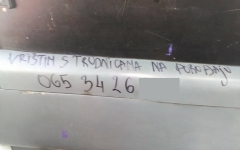 VRIŠTIM S TRUDNICAMA NA POROĐAJU
065 3426